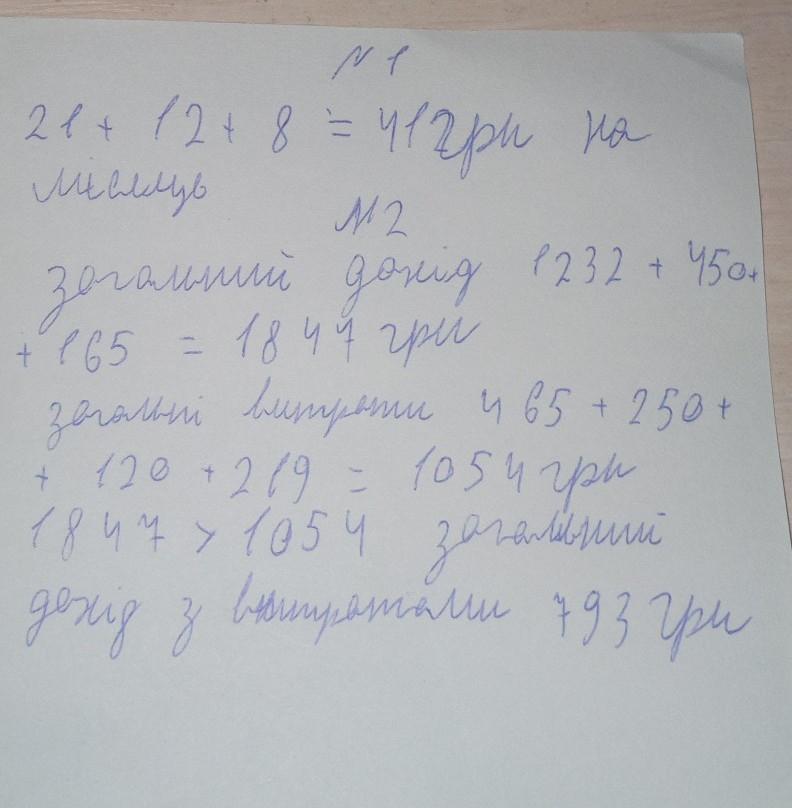 №1
21 + 12 + 8 = 41 грн на
місяць
№2
загальний дохід 1232 + 450+
+ 165 = 1847 грн
загальні витрати 465 + 250 +
+ 120 + 219 = 1054 грн
1847 > 1054 загальний
дохід з витратами 793 грн